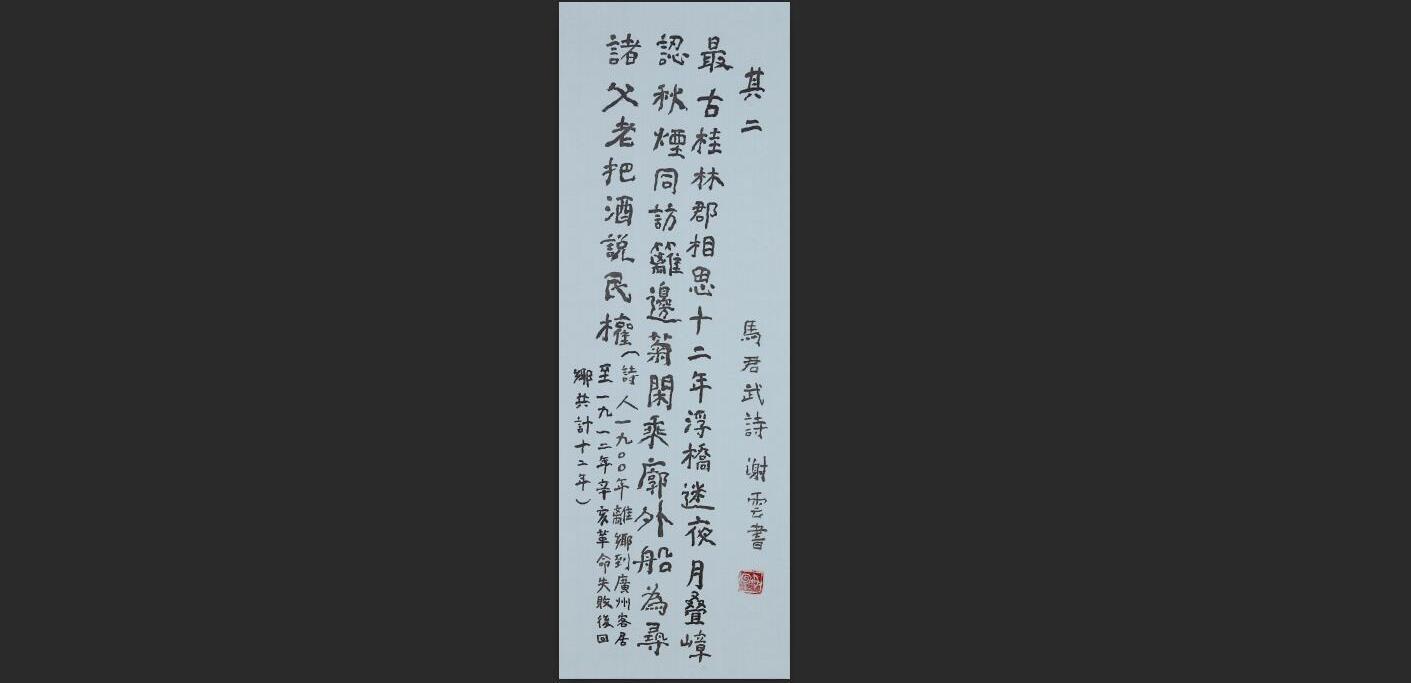 其二
馬君武詩 謝雲書
最古桂林郡相思十二年浮橋迷夜月叠嶂
認秋煙同訪籬邊菊閑乘廓外船為尋
諸父老把酒説民權
（詩人一九〇〇年離鄉到廣州客居
至一九一二年辛亥革命失敗後回
鄉共計十二年）